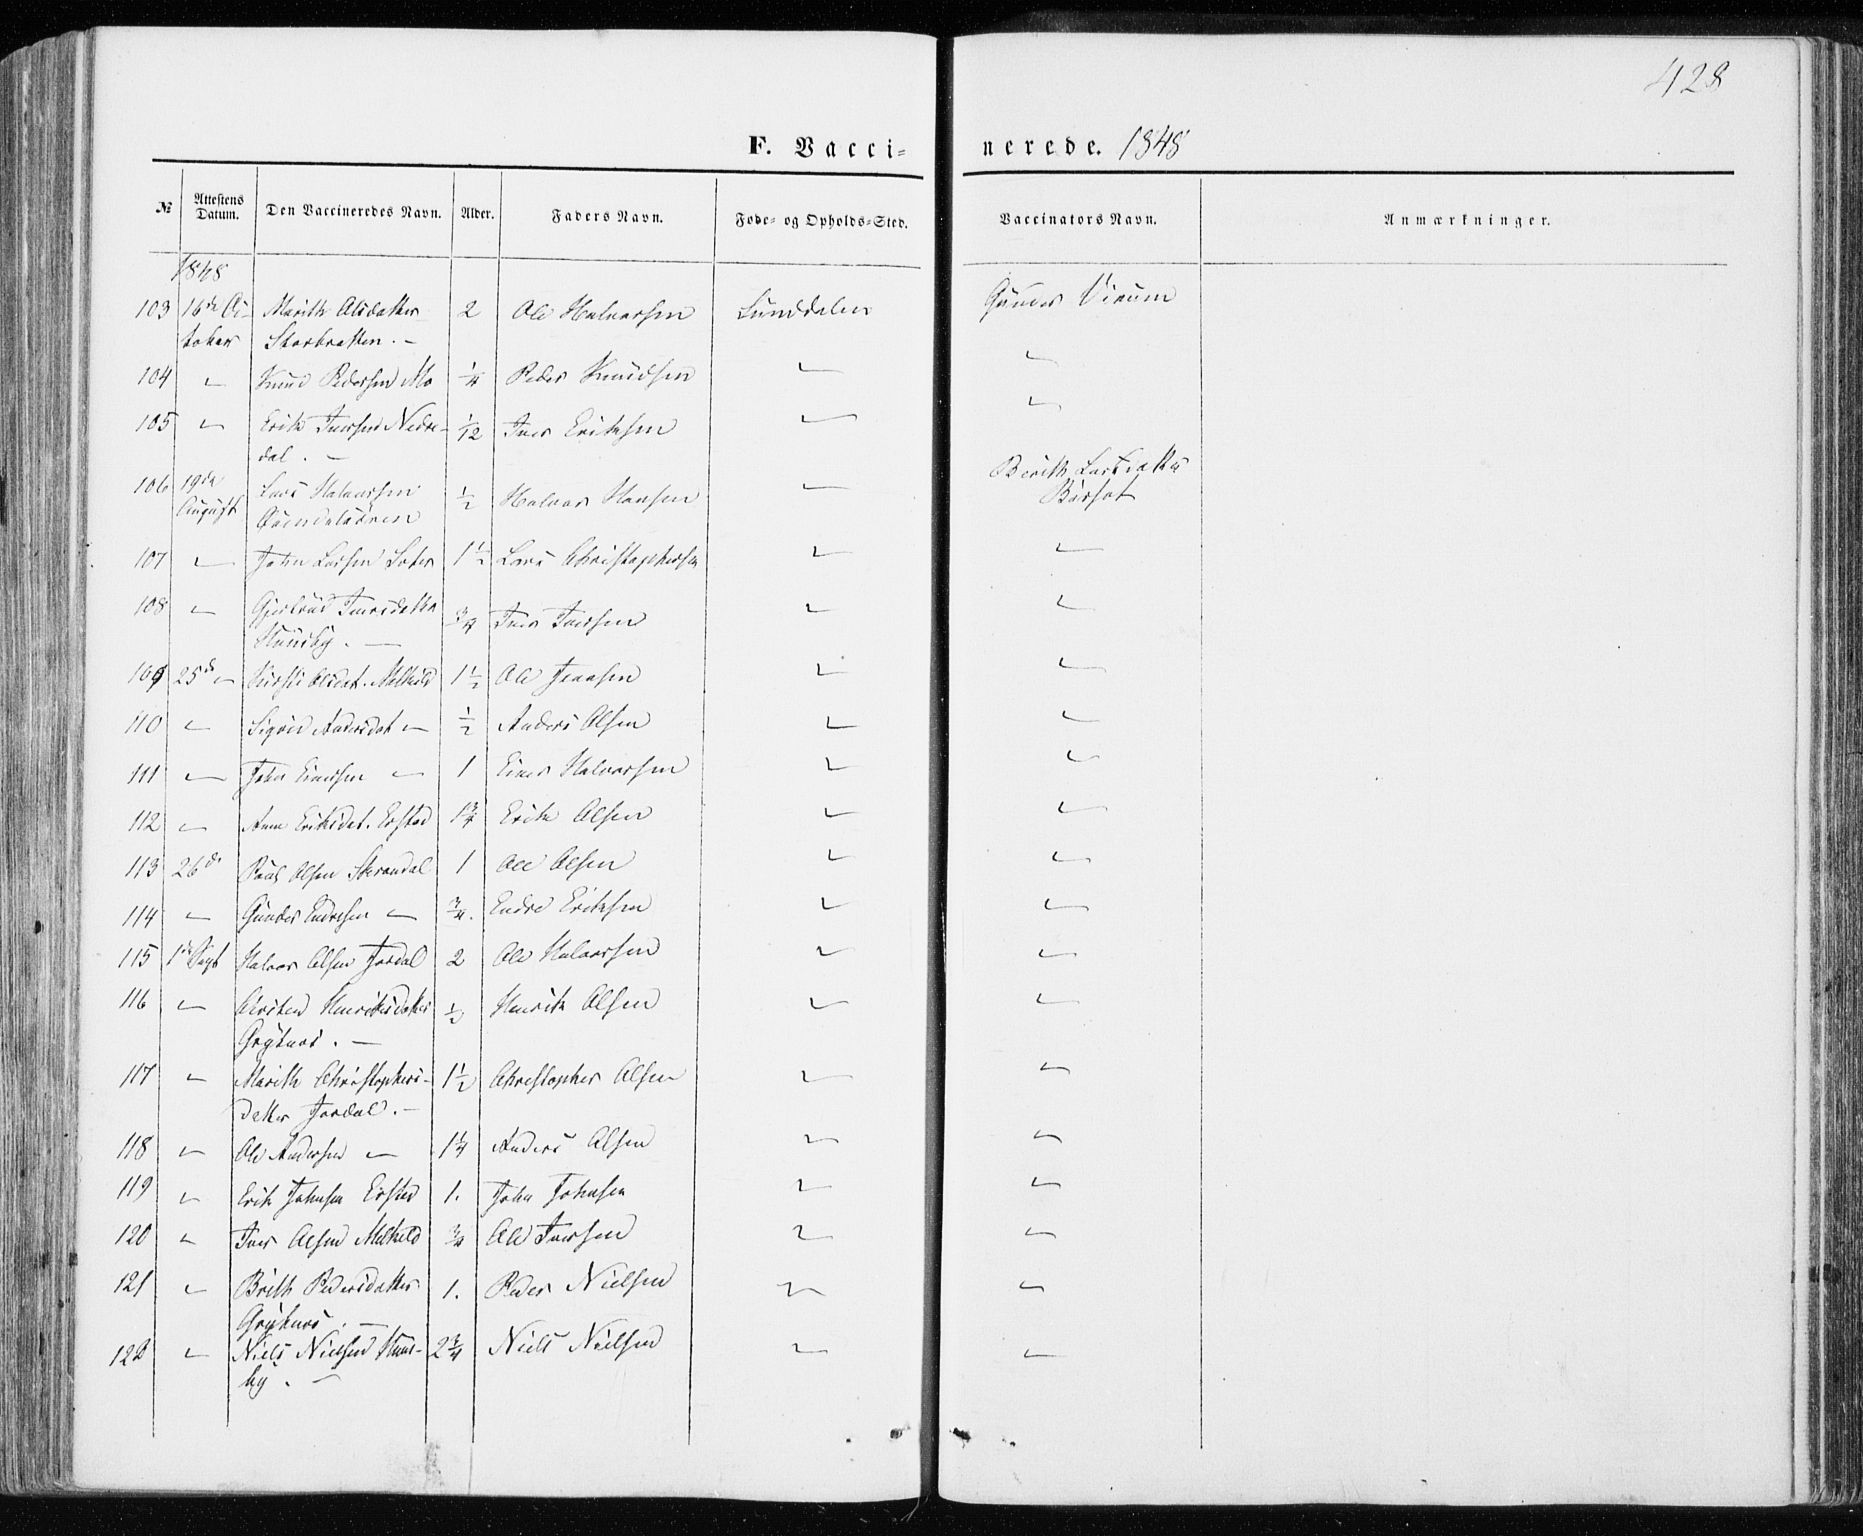 428
F. Vacci- nerede. 1848
№ Attestens Datum. Den Vaccineredes Navn. Alder. Faders Navn. Føde- og Opholds-Sted. Vaccinators Navn. Anmærkninger.
1848
103 16de Oc- Marith Olsdatter 2 Ole Halvorsen Sunddalen Gunder Virum
tober Storbratten. -
104 " Knud Pedersen Mo 1/4 Peder Knudsen " "
105 " Erik Iversen Nedre- 1/12 Iver Eriksen " "
dal. -
106 19de Lars Halvorsen 1/2 Halvor Hansen " Berith Larsdatter
August Sundalsøren Børset
107 " John Larsen 1 1/2 Lars Christophersen " "
108 " Gjertrud Iversdatter 3/4 Iver Iversen " "
Huusby. -
109 25de " Kirsti Olsdat. Melkild 1 1/2 Ole Jensen " "
110 " Sigrid Andersdat " 1/2 Anders Olsen " "
111 " John Einersen " 1 Einer Halvorsen " "
112 " Anne Eriksdat. Erstad 1 3/4 Erik Olsen " "
113 26de Paul Olsen Skrondal 1 Ole Olsen " "
114 " Gunder Endresen " 3/4. Endre Eriksen " "
115 1ste Sept Halvor Olsen Jordal 2 Ole Halvorsen " "
116 " Kirsten Henriksdatter 1/3 Henrik Olsen " "
Grytnes. -
117 " Marith Christophers- 1 1/2 Christopher Olsen " "
datter Jordal. -
118 " Ole Andersen " 1 1/4 Anders Olsen " "
119 " Erik Johnsen Erstad 1. John Johnsen " "
120 " Iver Olsen Melkild 3/4 Ole Iversen " "
121 " Brith Pedersdatter 1. Peder Nielsen " "
Grytnes. -
122 " Niels Nielsen Huus- 2 3/4 Niels Nielsen " "
by. -